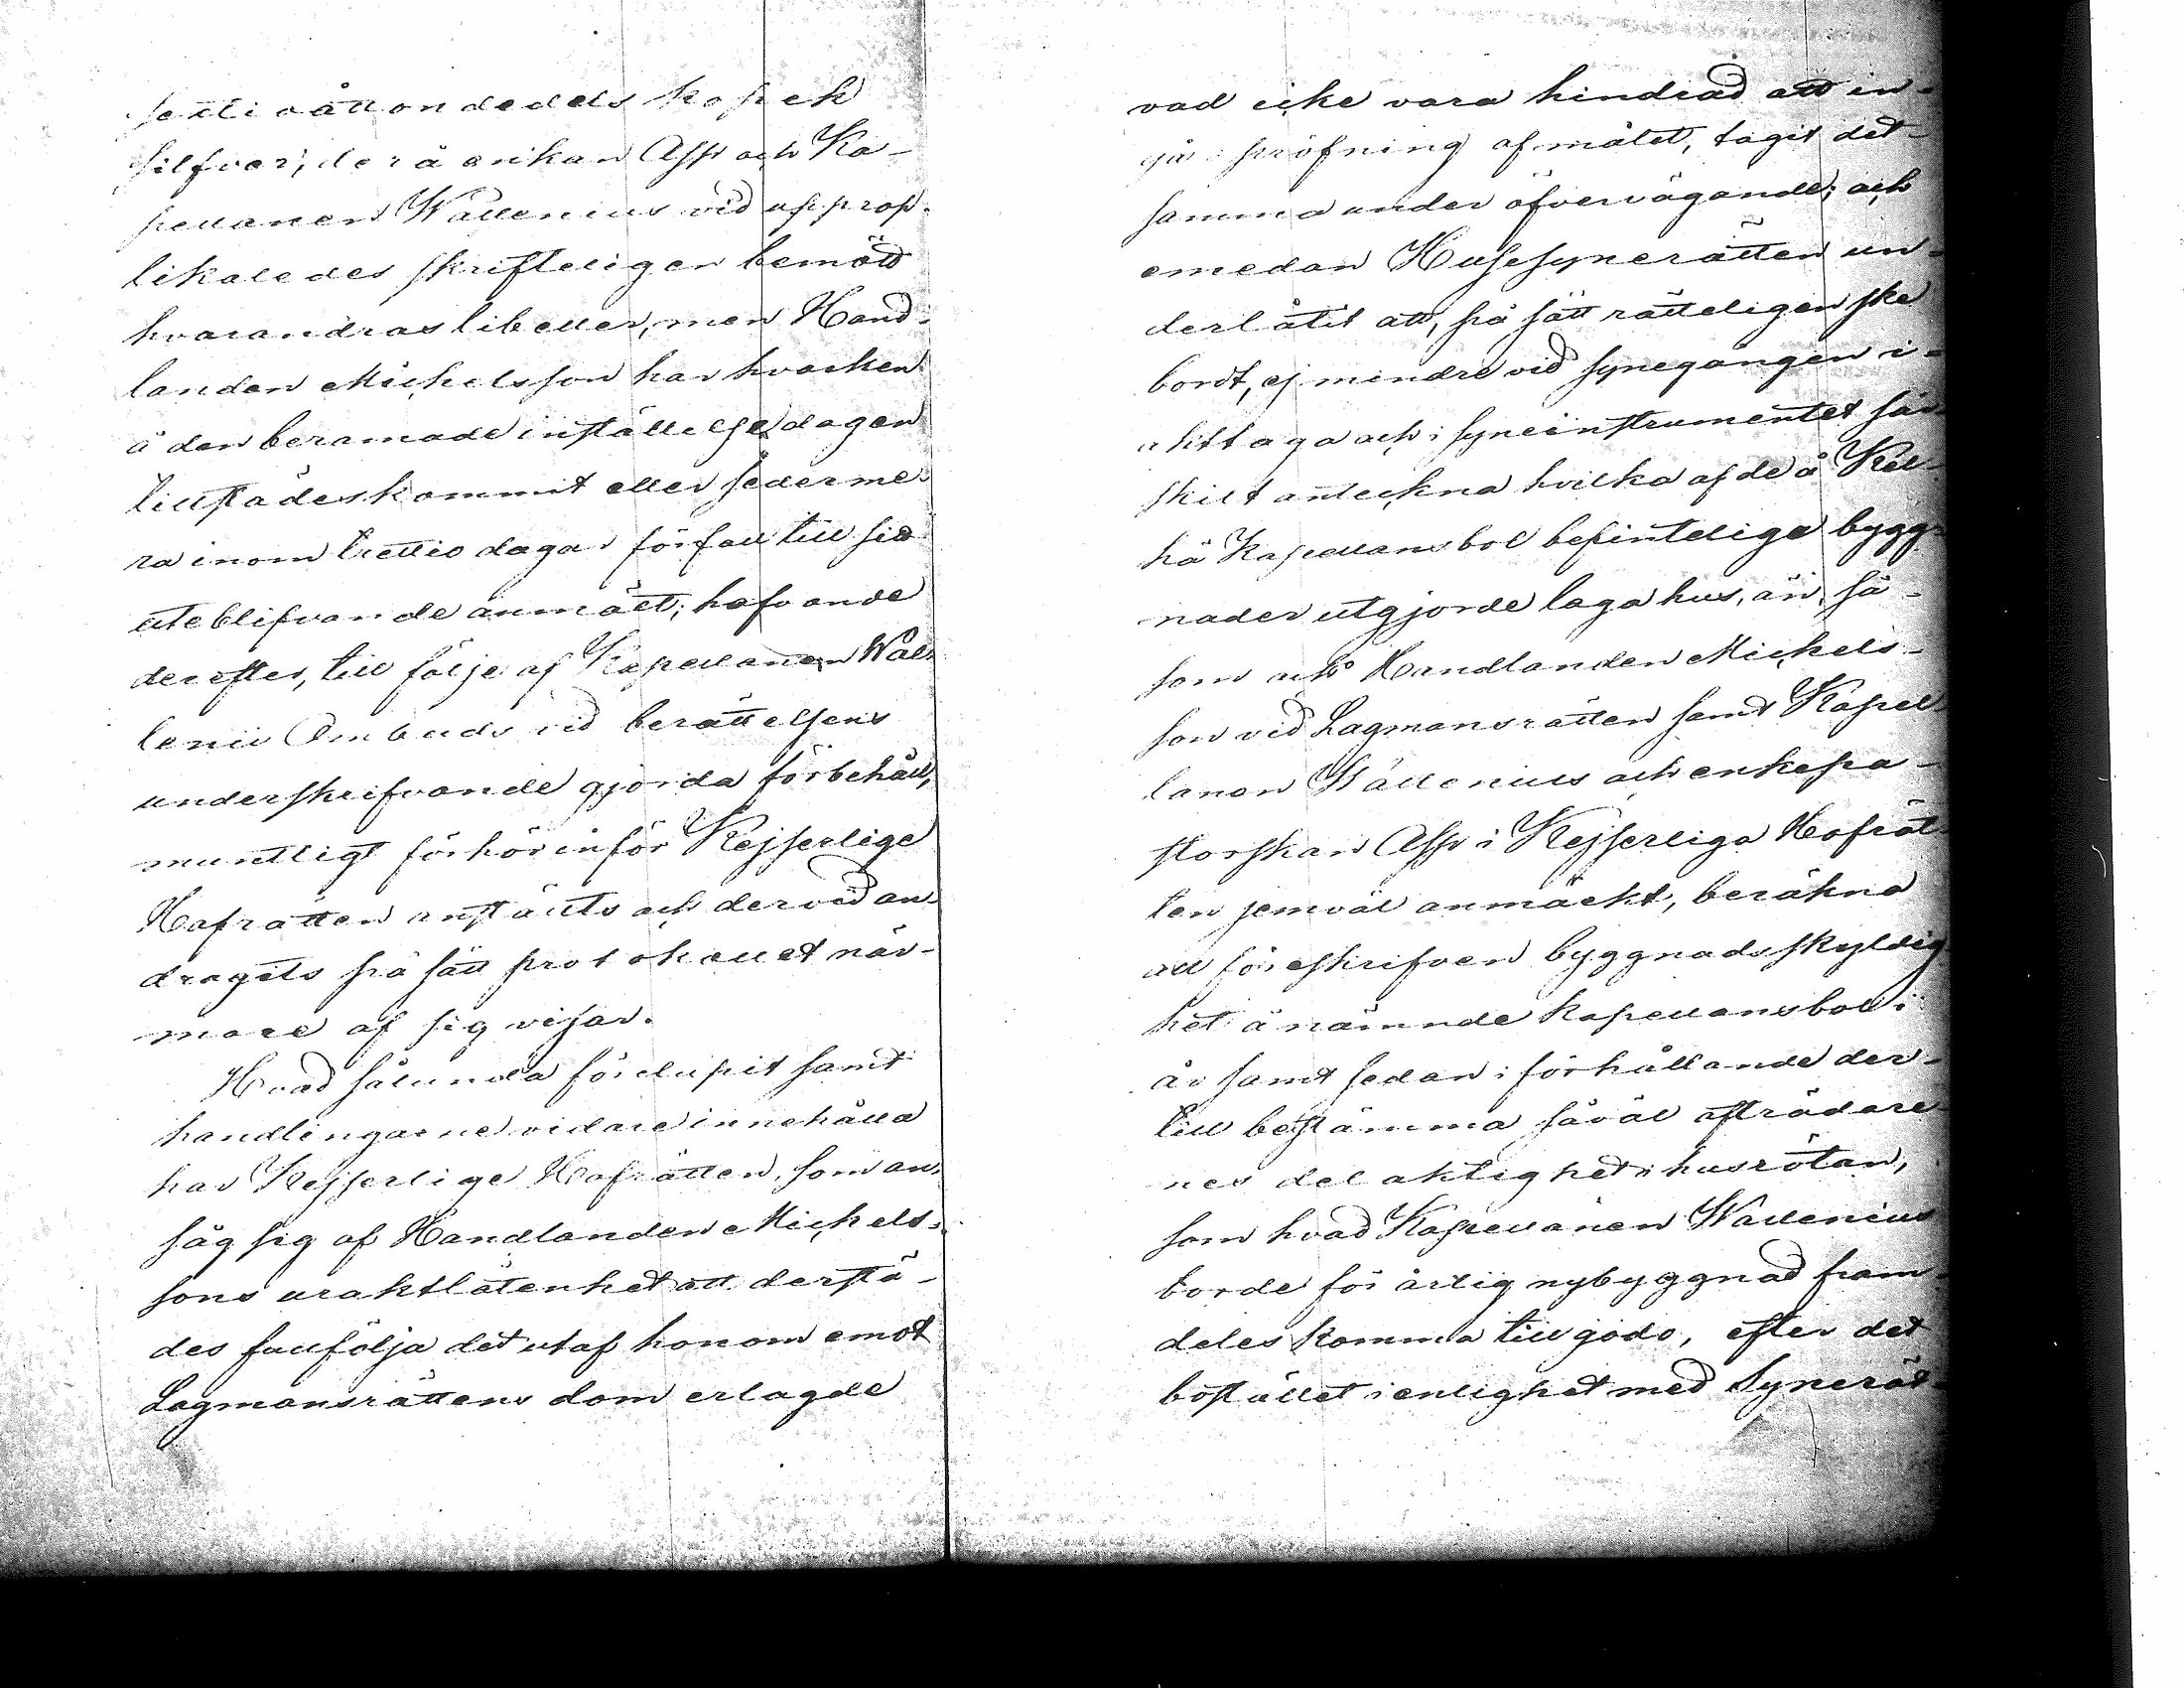 sexti åttondedels kopek
silfver; derå enkan Asp och Ka-
pellanen Wallenius vid uppprop-
likaledes skrifteligen bemött
hvarandras libeller, men Hand-
landen Michelsson har hvarken
å den beramade inställelsedagen
tillstädeskommit eller sederme-
ra inom trettio dagar förfall till sitt
uteblifvande anmält; hafvande
derefter, till följe af Kapellanen Wal-
lenii Ombuds vid berättelsens
underskrifvande gjorda förbehåll,
muntligt förhör inför Kejserlige
Hofrätten anstälts och dervid an-
dragits på sätt protokollet när-
mare af sig visar.
Hvad sålunda förelupit samt
handlingarne vidare innehålla
har Kejserlige Hofrätten, som an-
såg sig af Handlanden Michels-
sons uraktlåtenhet att derstä-
des fullfölja det utaf honom emot
Lagmansrättens dom erlagde
vad icke vara hindrad att in-
gå i pröfning af målet, tagit det-
samma under öfvervägande; och
emedan Husesynerätten un-
derlåtit att, på sätt rätteligen ske
bordt, ej mindre vid synegången i-
akttaga och i syneinstrumentet sär-
skilt anteckna hvilka af de å
Kapellansbol befinteliga bygg-
nader utgjorde laga hus, än, så-
som ock Handlanden Michels-
son vid Lagmansrätten samt Kapel-
lanen Wallenius och enkepa-
storskan Asp i Kejserliga Hofrät-
ten jemväl anmärkt, beräkna
all föreskrifven byggnadsskyldig-
het å nämnde kapellansbol i
år samt sedan i förhållande der-
till bestämma såväl afträdare-
nes delaktighet i husrötan,
som hvad Kapellanen Wallenius
borde för årlig nybyggnad fram-
deles komma till godo, efter det
bostället i enlighet med Synerät-